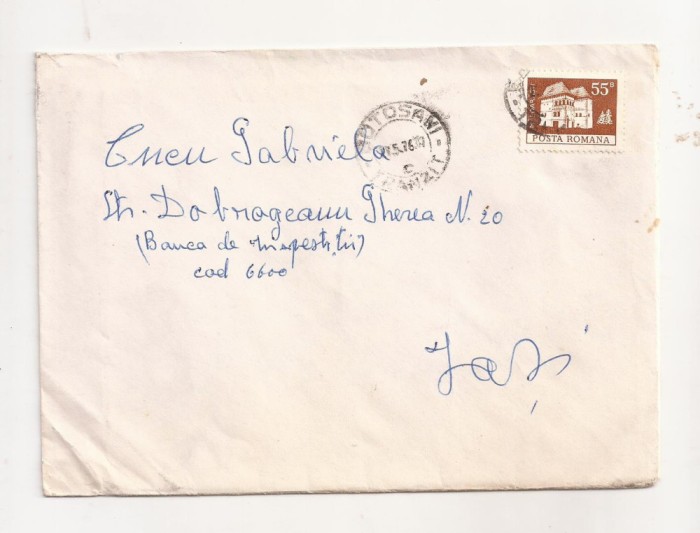 55 B
POSTA ROMANA
BOTOSANI
5.76
C
TRANZIT
Cucu Gabriela
Str. Dobrogeanu Gherea N. 20
(Banca de Investiții)
cod 6600
Iași